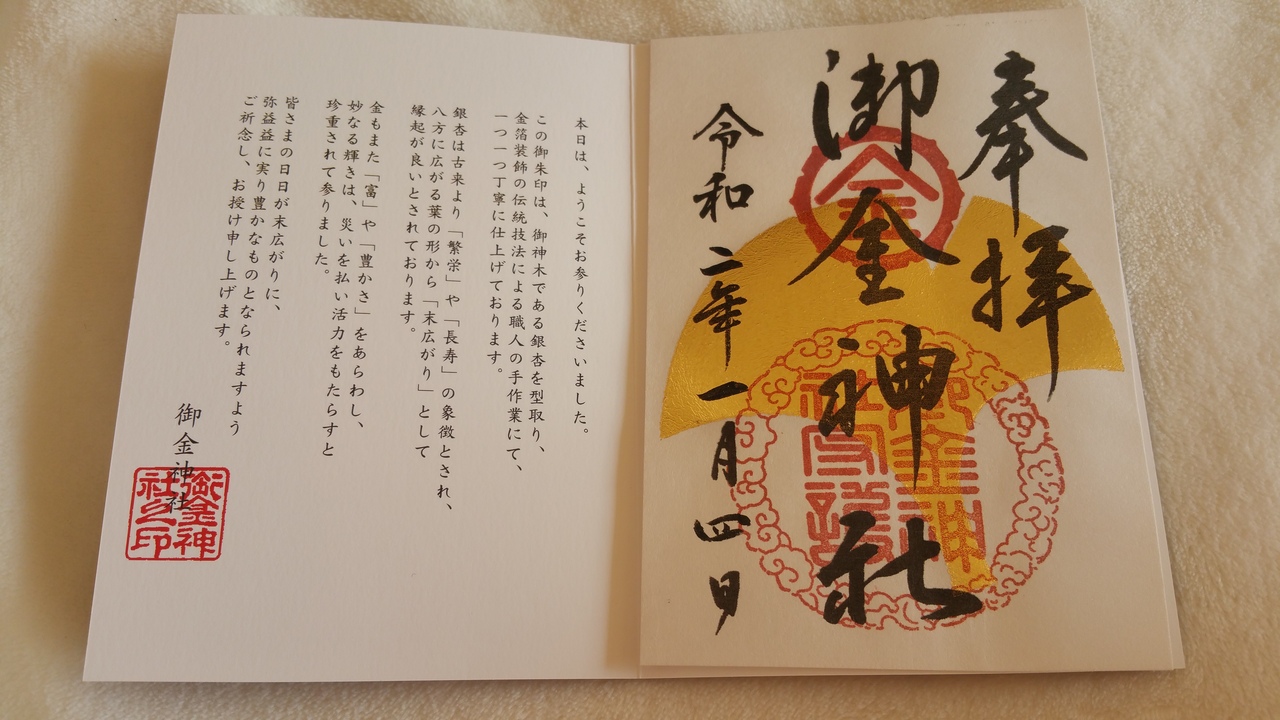 奉拝
御金神社
令和二年一月四日
金
御金神
社之印
本日は、ようこそお参りくださいました。
この御朱印は、御神木である銀杏を型取り、
金箔装飾の伝統技法による職人の手作業にて、
一つ一つ丁寧に仕上げております。
銀杏は古来より「繁栄」や「長寿」の象徴とされ、
八方に広がる葉の形から「末広がり」として
縁起が良いとされております。
金もまた「富」や「豊かさ」をあらわし、
妙なる輝きは、災いを払い活力をもたらすと
珍重されて参りました。
皆さまの日日が末広がりに、
弥益益に実り豊かなものとなられますよう
ご祈念し、お授け申し上げます。
御金神社
御金神
社之印